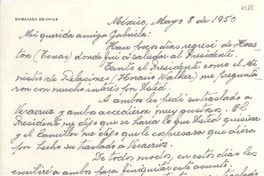 EMBAJADA DE CHILE
México, Mayo 8 de 1950
Mi querida amiga Gabriela:
Hace pocos días regresé de Hous-
ton (Texas) donde fui a saludar al Presidente.
Tanto el Presidente como el Mi-
nistro de Relaciones (Horacio Walker) me pregunta-
ron con mucho interés por Usted.
A ambos les pedí su traslado a
Veracruz y ambos accedieron muy gustosos. El
Presidente me dijo que se haría lo que Usted quisiera
y el Canciller me dijo que le expresara que diera
por hecho su traslado a Veracruz.
De todos modos, en estos días les
escribiré a ambos para finiquitar este asunto.